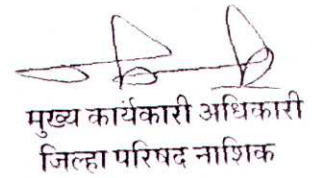 मुख्य कार्यकारी अधिकारी
जिल्हा परिषद नाशिक